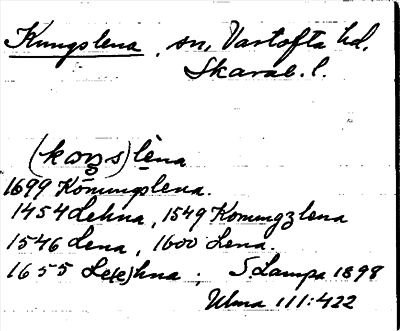 Kungslena, sn, Vartofta hd.
Skarab. l.
(koŋs)lẹna
1699 Konungslena.
1454 Lehna, 1549 Konungzlena
1546 Lena, 1600 Lena.
1655 Le(e)hna; S. Lampa 1898
Ulma 111:422